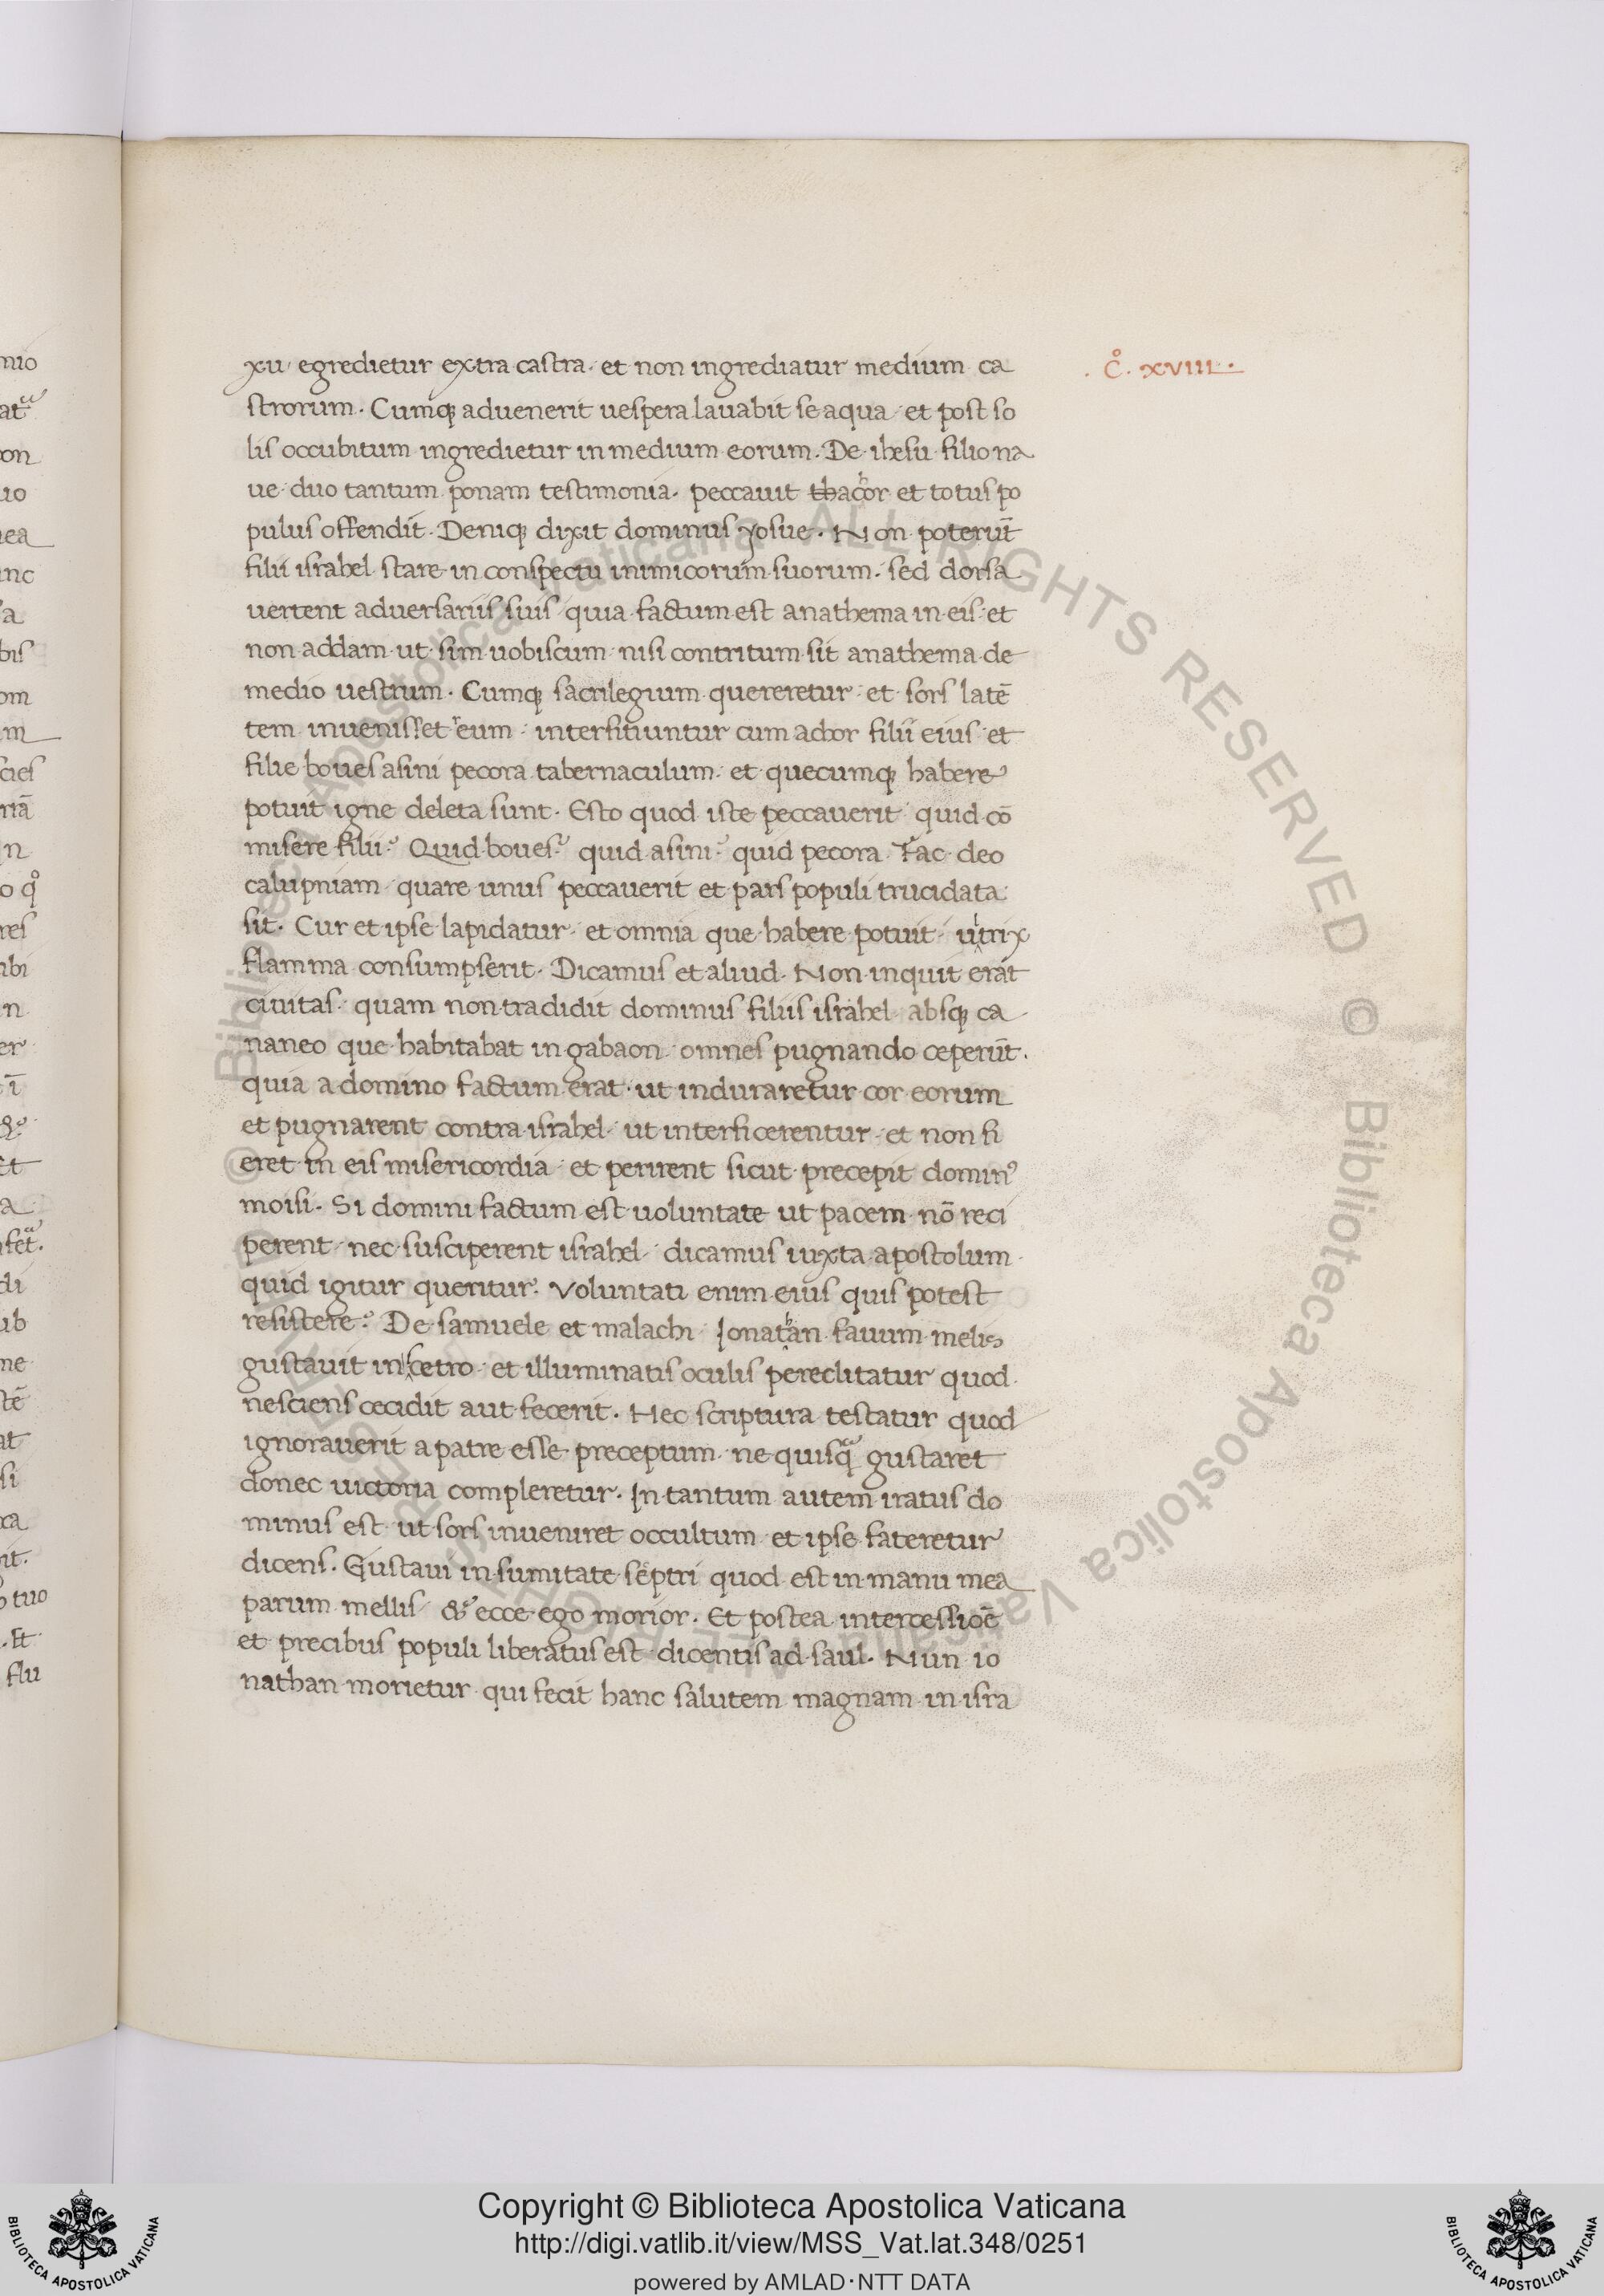 xu egredietur extra castra. et non ingrediatur medium ca
C̊. XVIII.
strorum. Cumq; aduenerit uespera lauabit se aqua et post so
lis occubitum ingredietur in medium eorum. De ihesu filio na
ue duo tantum ponam testimonia. peccauit et totus po
pulus offendit. Deniq; dixit dominus yosue. Non poterūt
filii israhel stare in conspectu inimicorum suorum. sed dorsa
uertent aduersariis suis quia factum est anathema in eis et
non addam ut sim uobiscum nisi contritum sit anathema de
medio uestrum. Cumq; sacrilegium quereretur et sors latē
tem inuenisset eum interfitiuntur cum achor filii eius et
filie boues asini pecora tabernaculum et quecumq; habere
potuit igne deleta sunt. Esto quod iste peccauerit quid cō
misere filii? Quid boues? quid asini? quid pecora. Fac deo
calupniam quare unus peccauerit et pars populi trucidata
sit. Cur et ipse lapidatur et omnia que habere potuit ultrix
flamma consumpserit. Dicamus et aliud. Non inquit erat
ciuitas quam non tradidit dominus filiis israhel absq; ca
naneo que habitabat in gabaon omnes pugnando ceperūt.
quia a domino factum erat ut induraretur cor eorum
et pugnarent contra israhel ut interficerentur et non fi
eret in eis misericordia et perirent sicut precepit dominꝰ
moisi. Si domini factum est uoluntate ut pacem nō reci
perent nec susciperent israhel dicamus iuxta apostolum
quid igitur queritur. Voluntati enim eius quis potest
resistere? De samuele et malachi Jonathan fauum melis
gustauit in scetro et illuminatis oculis pereclitatur quod
nesciens cecidit aut fecerit. Nec scriptura testatur quod
ignorauerit a patre esse preceptum ne quisqͣ gustaret
donec uictoria compleretur. In tantum autem iratus do
minus est ut sors inueniret occultum et ipse fateretur
dicens. Gustaui in sumitate sceptri quod est in manu mea
parum mellis & ecce ego morior. Et postea intercessioē
et precibus populi liberatus est dicentis ad saul. Nun io
nathan morietur qui fecit hanc salutem magnam in isra
Copyright © Biblioteca Apostolica Vaticana
http://digi.vatlib.it/view/MSS_Vat.lat.348/0251
powered by AMLAD·NTT DATA